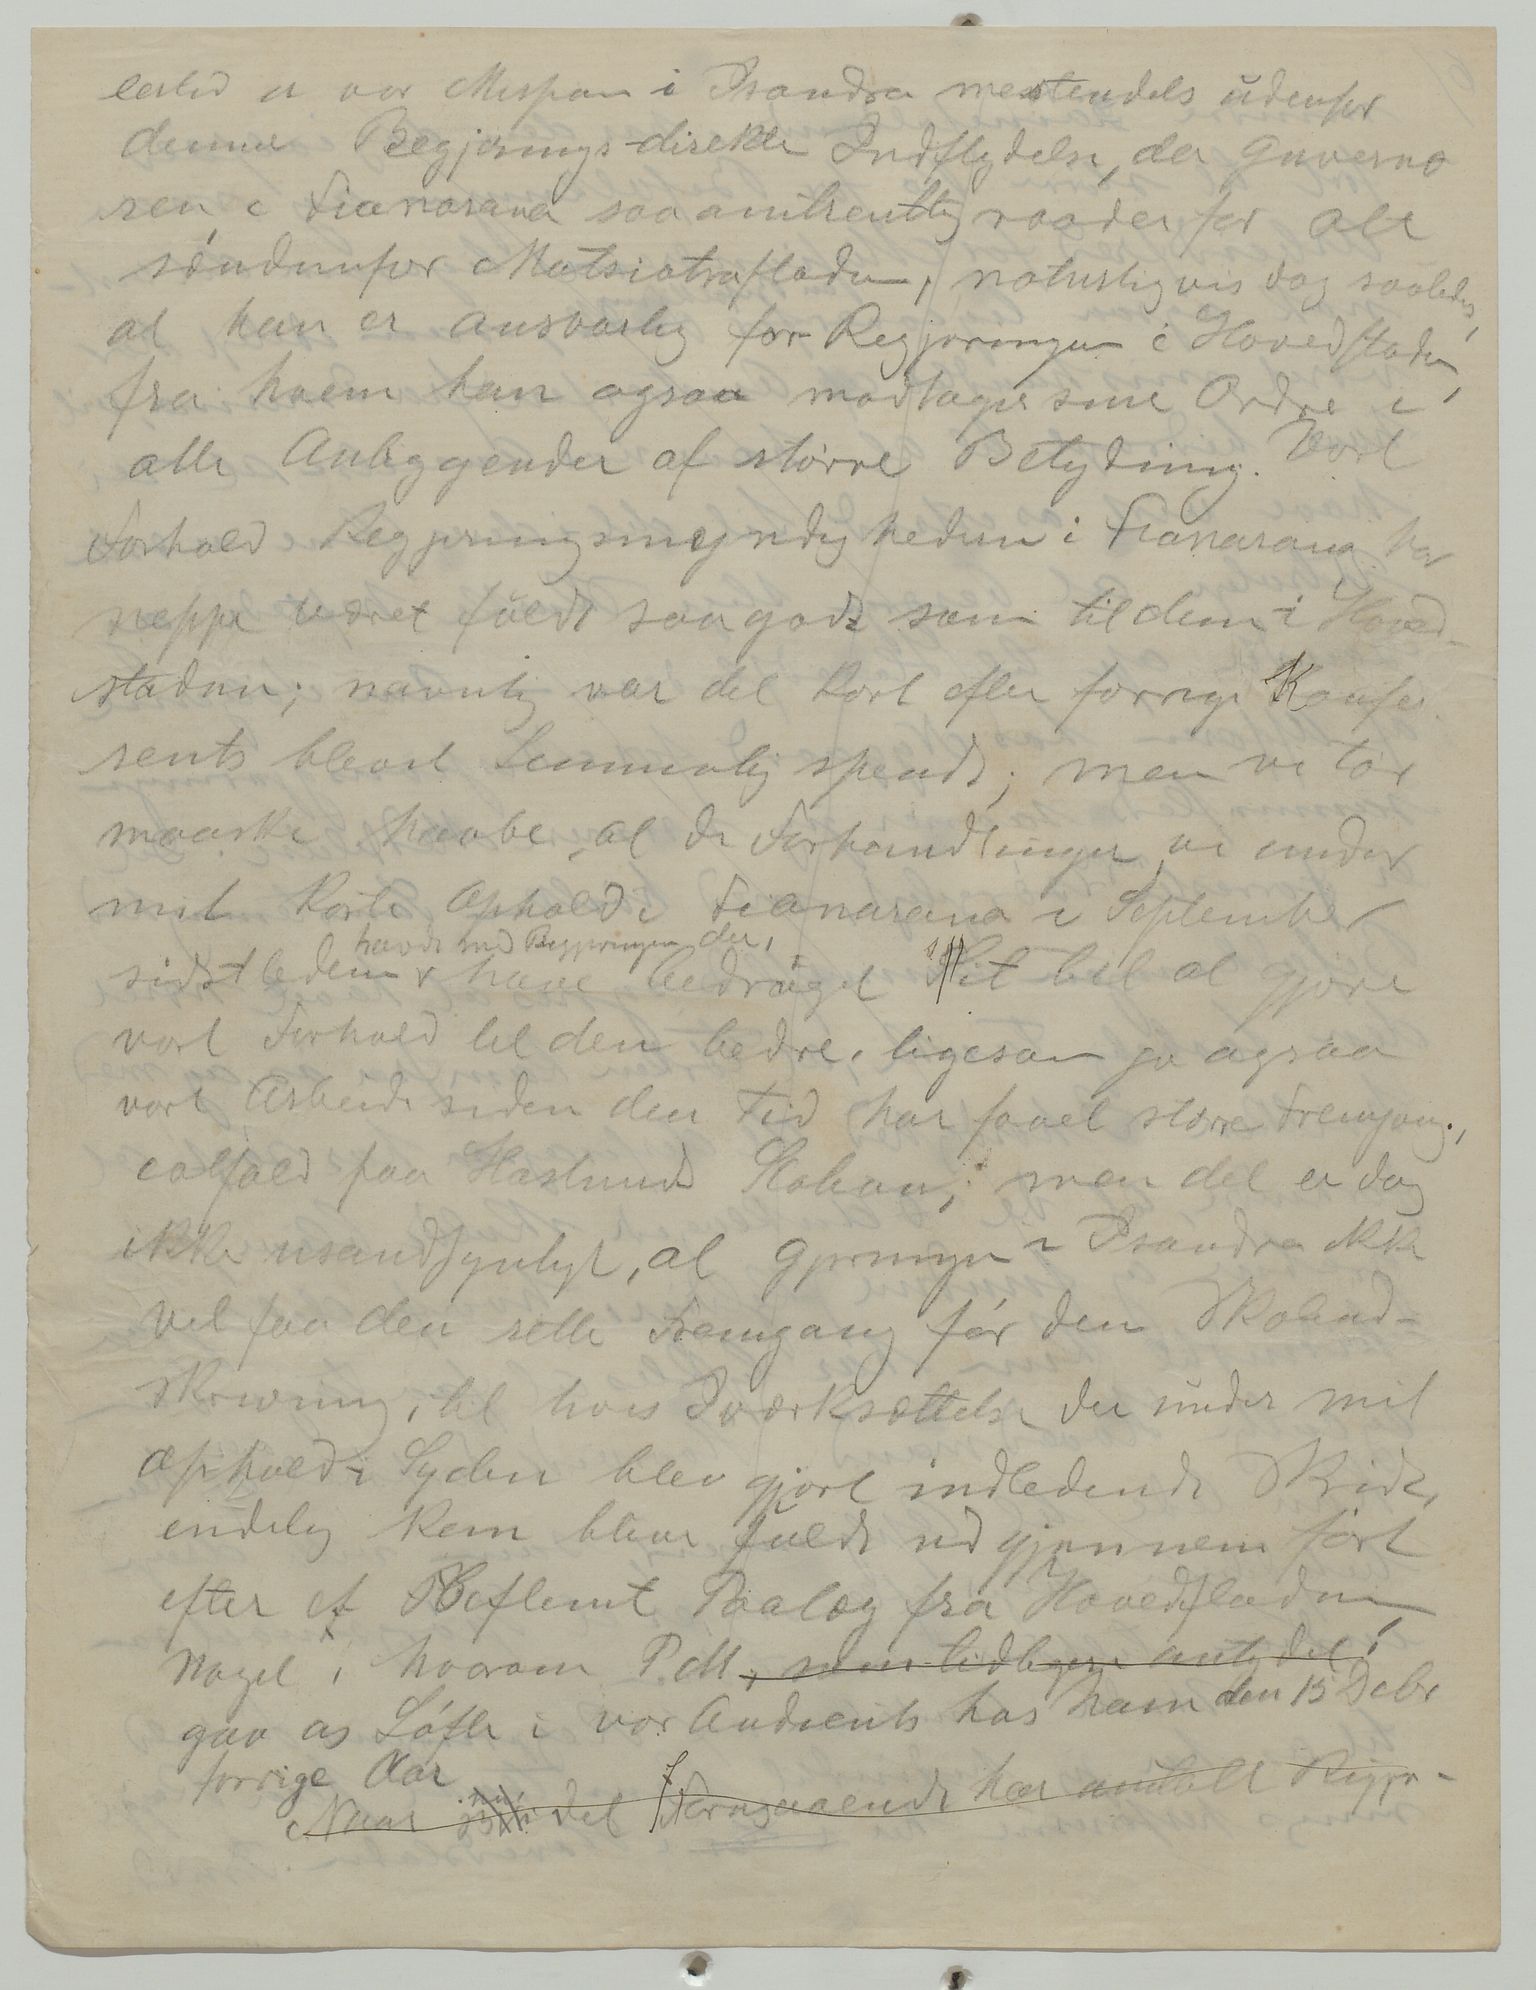 lertid er vor Mission i Isandra mestendels udenfor
denne Regjerings direkte Indflydelse, da Guvernø
ren i Fianarana saa omtrentlig raader for alt
søndenfor Matsiatrafloden, naturligvis dog saaledes,
at han er ansvarlig for Regjeringen i Hovedstaden,
fra hvem han ogsaa modtager sine Ordre i
alle Anliggender af større Betydning. Vort
Forhold Regjeringsmyndighederne i Fianarana har
neppe været fuldt saa godt som til dem i Hoved-
staden; navnlig var det kort efter forrige Konfe
rents blevet temmelig spendt; men vi tør
maaske haabe, at de Forhandlinger, vi under
mit korte Ophold i Fianarana i September
sidstleden havde med Regjeringen der, have bedraget Sit til at gjøre
vort Forhold til den bedre, ligesom jo ogsaa
vort Arbeide siden den Tid har faaet større Fremgang,
ialfald paa Haslunds Station; men det er dog
ikke usandsynligt, at Gjerningen i Isandra ikke
vil faa den rette Fremgang før den Skoleind-
skrivning, til hvis Iværksættelse der under mit
Ophold i Syden blev gjort indledende Skridt,
endelig kan blive fuldt ud gjennemført
efter et Bestemt Paalæg fra Hovedstaden,
Noget, hvorom P.M., som tidligere antydet,
gav os Løfte i vor Audients hos ham den 15 Decbr
forrige Aar
Naar nu i det Foregaaende har omtalt Regje-